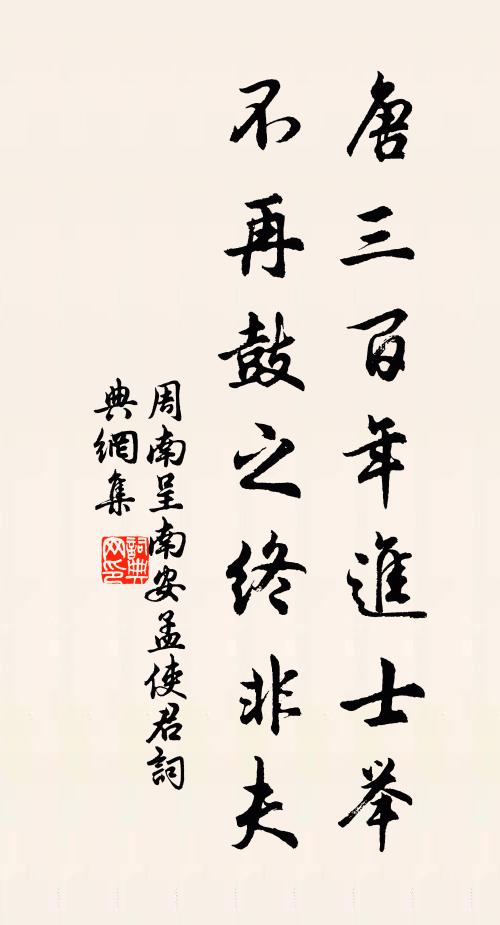 唐三百年進士举
不再鼓之终非夫
周南呈南安孟使君詞
典網集
詞典网印